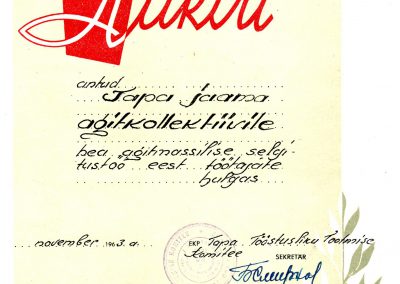 Aukiri
antud
Tapa jaama
agitkollektiivile
hea agitmassilise selgi-
tustöö eest töötajate
hulgas
november 1963. a.
EKP Tapa Tööstusliku Tootmise
Komitee
SEKRETÄR